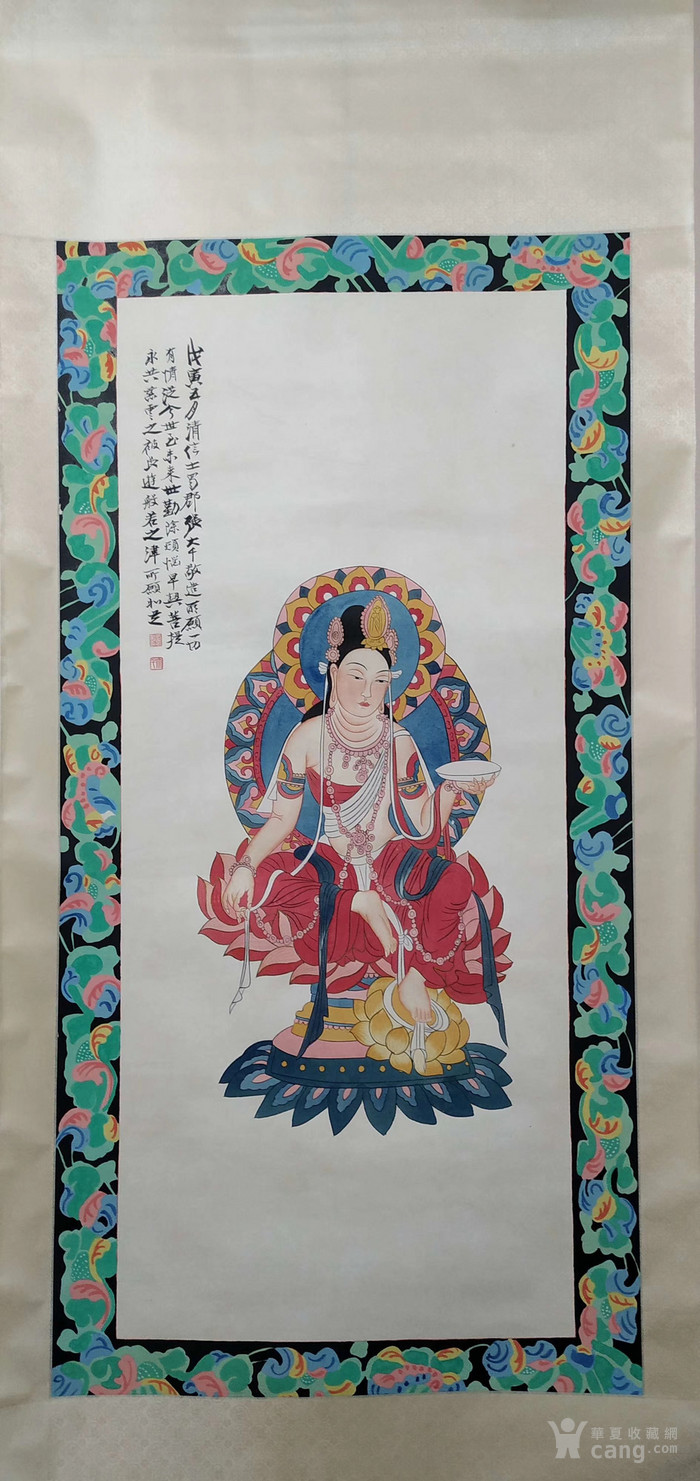 戊寅五月清信士蜀郡張大千敬造所願一切
有情從今世至未来世勤除煩惱早興菩提
永共慈雲之被長遊般若之津所願如是
華夏收藏網
cang.com